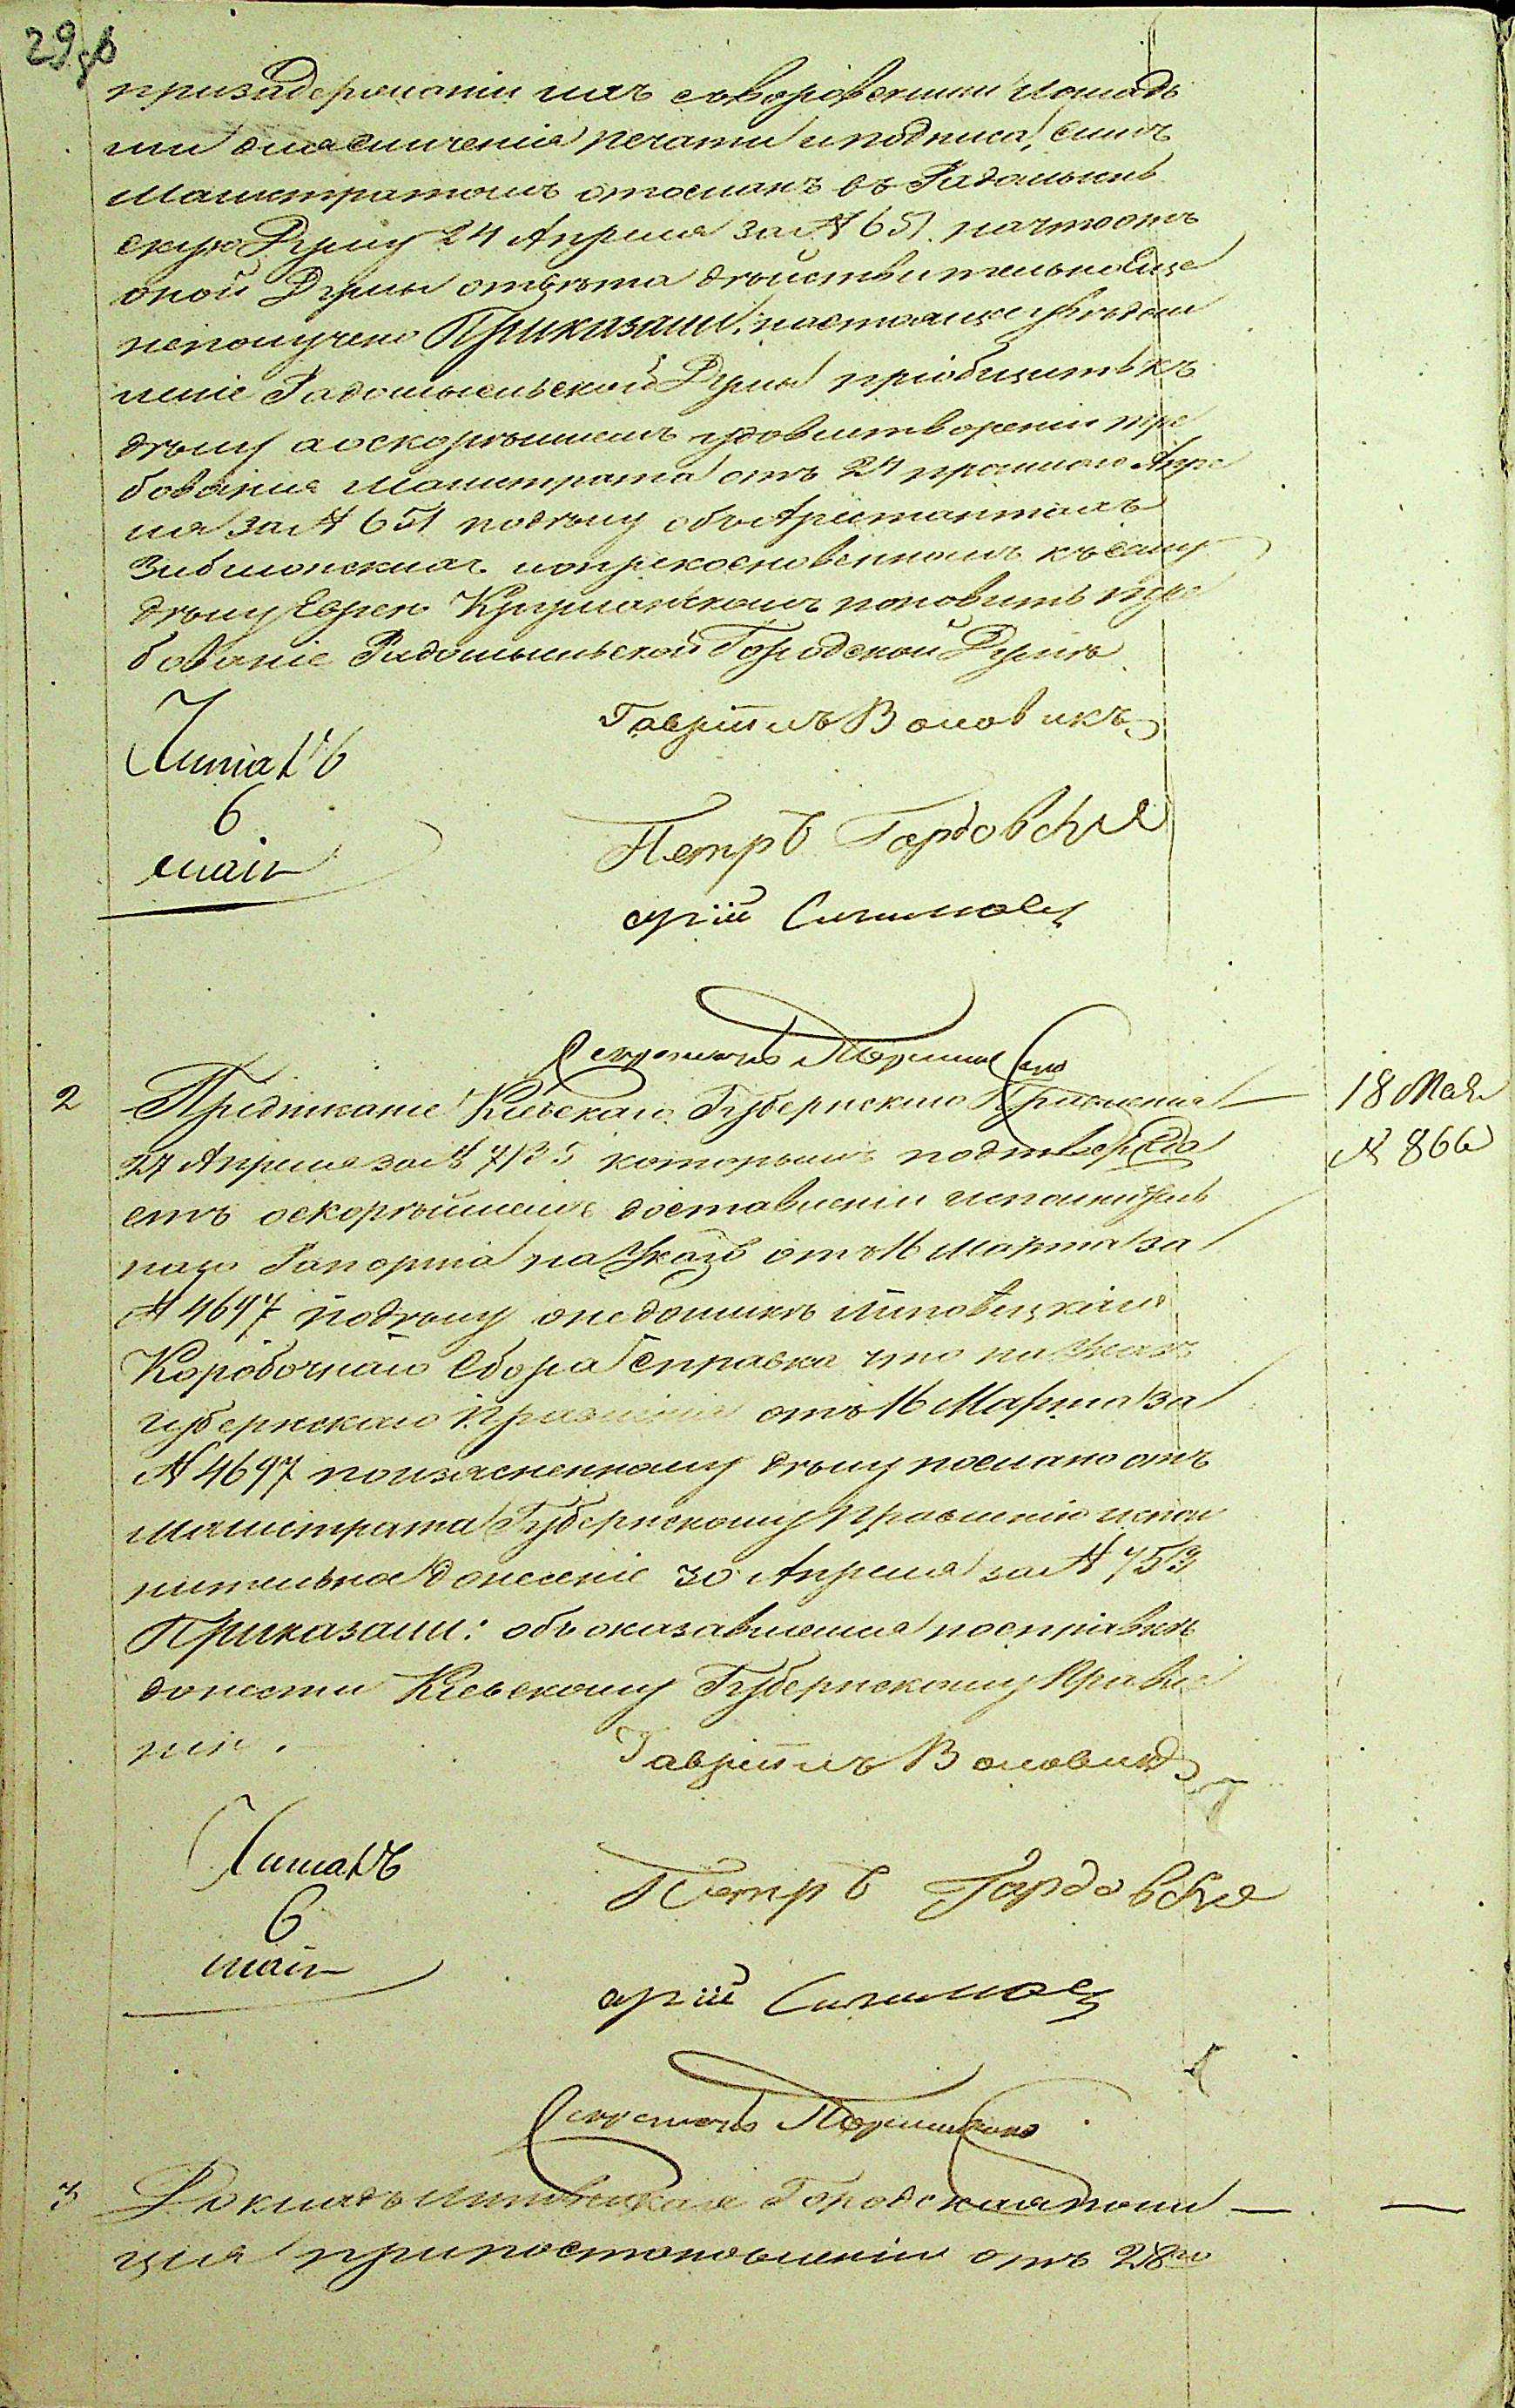 29 об
призадержаніи ихъ съворовскими Лошадь
ми для сличенія печати и подписа, симъ
Магистратомъ отосланъ въ Радомысль
скую Думу 24 Апреля за № 651. начтоотъ
оной Думы ответа действительно Еще
неполучено Приказали: настоящее уведом
леніе Радомысльской Думы пріобщить къ
делу а оскорейшемъ удовлетвореніи тре
бованія Магистрата отъ 24 прошлого Апре
ля за № 651 поделу объ Арестантахъ
Зиблонскихъ и прикосновенномъ къ сему
делу Еврею повить тре
бованіе Радомысльской Городской Думе
Гавріилъ Воловикъ
Читалъ
6
маія
Петръ Гордовскій
юрій
Секретарь
2 Предписаніе Кіевскаго Губернскаго Правленія —
27 Апреля за № 7135 которымъ подтвержда
етъ оскорейшемъ доставленіи исполнитель
наго Рапорта на Указъ отъ 16 Марта за
№ 4697 поделу о недоимке Липовецкаго
Коробочнаго Сбора Справка что на Указъ
губернскаго Правленія отъ 16 Марта за
№ 4697 поизясненному делу послано отъ
Магистрата Губернскому Правленію испол
нительное донесеніе 30 Апреля за № 753
Приказали: объ оказавшемся посправке
донести Кіевскому Губернскому Правле
нію.
18 Мая
№ 866
Гавріилъ Воловикъ
Читалъ
6
маія
Петръ Гордовскій
юрій
Секретарь
3 Докладъ Липовецкая Городская поли — —
ція при постановленіи отъ 28го